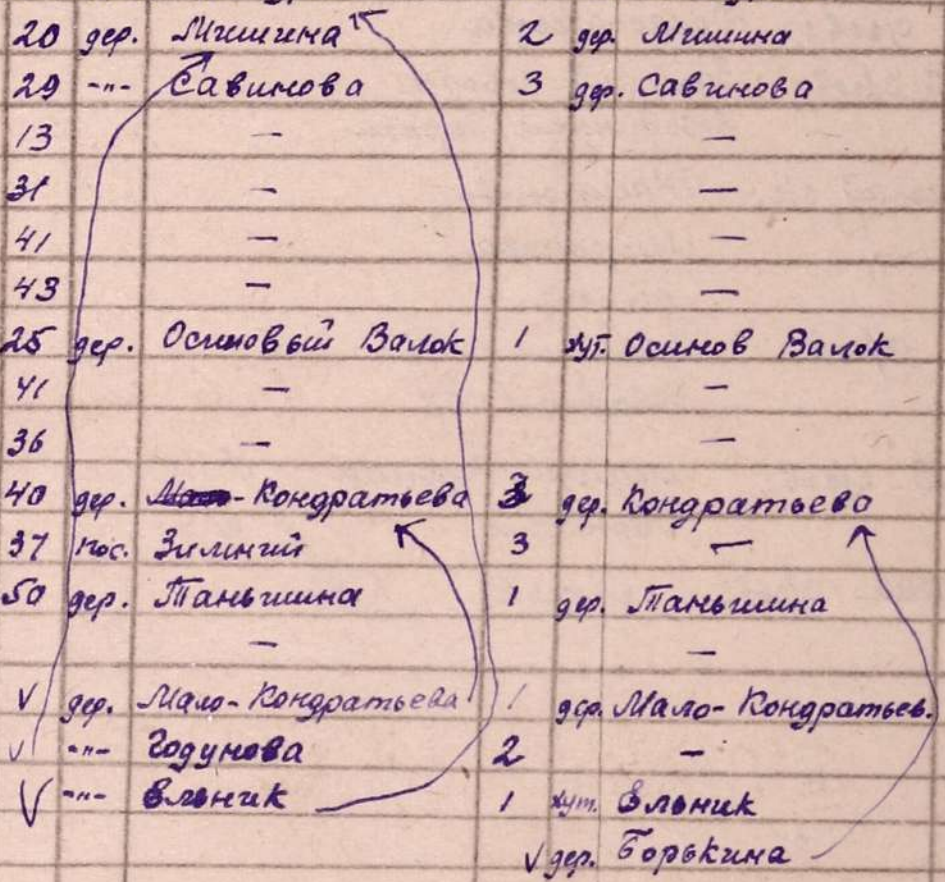 20 дер. Мишина 2 дер. Мишина
29 -"- Савинова 3 дер. Савинова
13 — —
31 — —
41 — —
43 — —
25 дер. Осиновый Валок 1 хут. Осинов Валок
41 — —
36 — —
40 дер. -Кондратьева 3 дер. Кондратьева
37 пос. Зимний 3 —
50 дер. Таньшина 1 дер. Таньшина
— —
V дер. Мало-Кондратьева 1 дер. Мало-Кондратьев.
V -"- Годунова 2 —
V -"- Ельник 1 хут. Ельник
V дер. Борькина